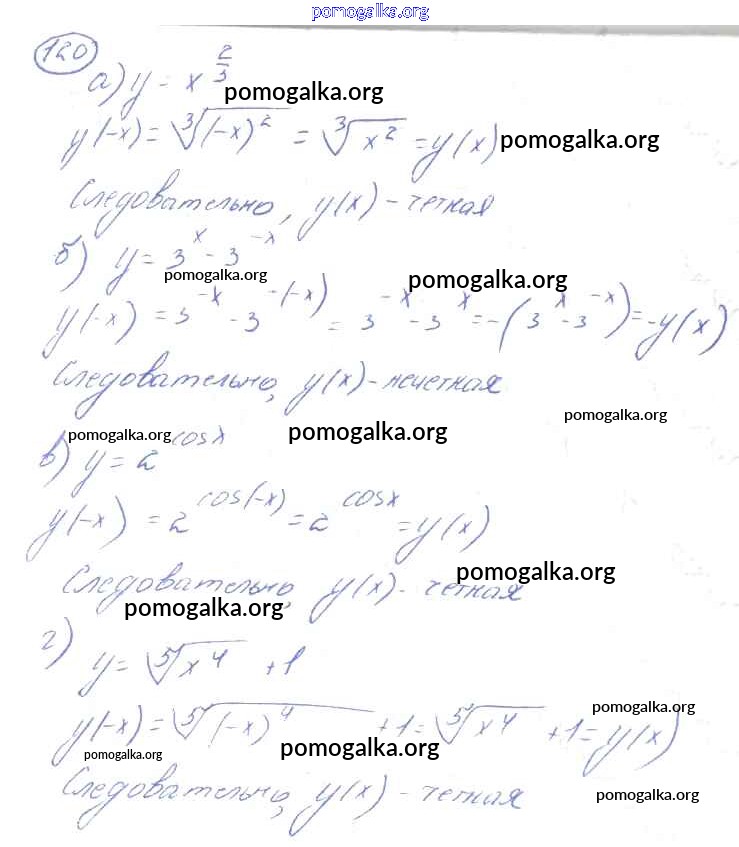 pomogalka.org
120
а) y = x^(2/3)
pomogalka.org
y(-x) = ∛(-x)² = ∛x² = y(x) pomogalka.org
Следовательно, y(x) - четная
б) y = 3^x - 3^-x
pomogalka.org pomogalka.org
y(-x) = 3^-x - 3^-(-x) = 3^-x - 3^x = -(3^x - 3^-x) = -y(x)
Следовательно, y(x) - нечетная
pomogalka.org
pomogalka.org pomogalka.org
в) y = 2^cosx
y(-x) = 2^cos(-x) = 2^cosx = y(x)
pomogalka.org
Следовательно, y(x) - четная
pomogalka.org
г)
y = ⁵√x⁴ + 1
pomogalka.org
y(-x) = ⁵√(-x)⁴ + 1 = ⁵√x⁴ + 1 = y(x)
pomogalka.org pomogalka.org
Следовательно, y(x) - четная
pomogalka.org